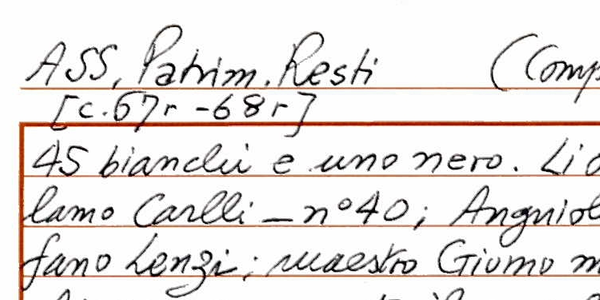 ASS, Patrim. Resti (Comp
[c. 67r - 68r]
45 bianchi e uno nero. Li
lamo Carlli - n° 40; Angniol
fano Lenzi; maestro Giomo m